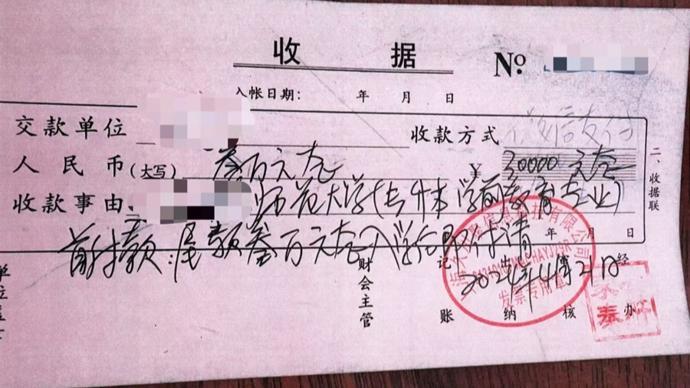 收据
№
入帐日期: 年 月 日
交款单位 收款方式 微信支付
人民币(大写) 叁万元整 ¥ 30000元整
收款事由 师范大学(专升本 学前教育专业)
首付款:尾款叁万元整入学后即付清
年 月 日
单位盖
财会主管
记账
出纳
审核
经办
2024年4月21日
有限公司
发票专用
二、收据联